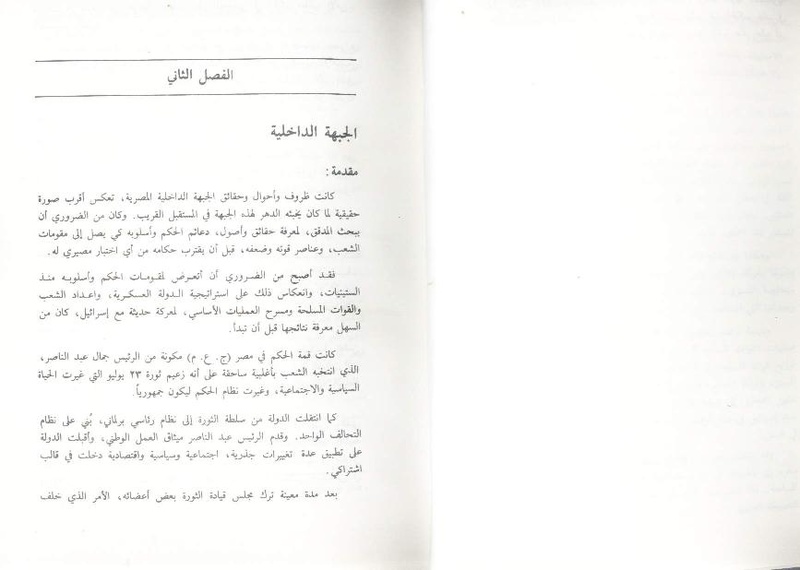 الفصل الثاني
الجبهة الداخلية
مقدمة :
كانت ظروف وأحوال وحقائق الجبهة الداخلية المصرية، تعكس أقرب صورة
حقيقية لما كان يخبئه الدهر لهذه الجبهة في المستقبل القريب. وكان من الضروري أن
يبحث المدقق، لمعرفة حقائق وأصول، دعائم الحكم وأسلوبه كي يصل إلى مقومات
الشعب، وعناصر قوته وضعفه، قبل أن يقترب حكامه من أي اختبار مصيري له.
فقد أصبح من الضروري أن أتعرض لمقومات الحكم وأسلوبه منذ
الستينيات، وانعكاس ذلك على استراتيجية الدولة العسكرية، واعداد الشعب
والقوات المسلحة ومسرح العمليات الأساسي، لمعركة حديثة مع إسرائيل، كان من
السهل معرفة نتائجها قبل أن تبدأ.
كانت قمة الحكم في مصر (ج. ع. م) مكونة من الرئيس جمال عبد الناصر،
الذي انتخبه الشعب بأغلبية ساحقة على أنه زعيم ثورة ٢٣ يوليو التي غيرت الحياة
السياسية والاجتماعية، وغيرت نظام الحكم ليكون جمهورياً.
كما انتقلت الدولة من سلطة الثورة إلى نظام رئاسي برلماني، بُني على نظام
التحالف الواحد. وقدم الرئيس عبد الناصر ميثاق العمل الوطني، وأقبلت الدولة
على تطبيق عدة تغييرات جذرية، اجتماعية وسياسية واقتصادية دخلت في قالب
اشتراكي.
بعد مدة معينة ترك مجلس قيادة الثورة بعض أعضائه، الأمر الذي خلف